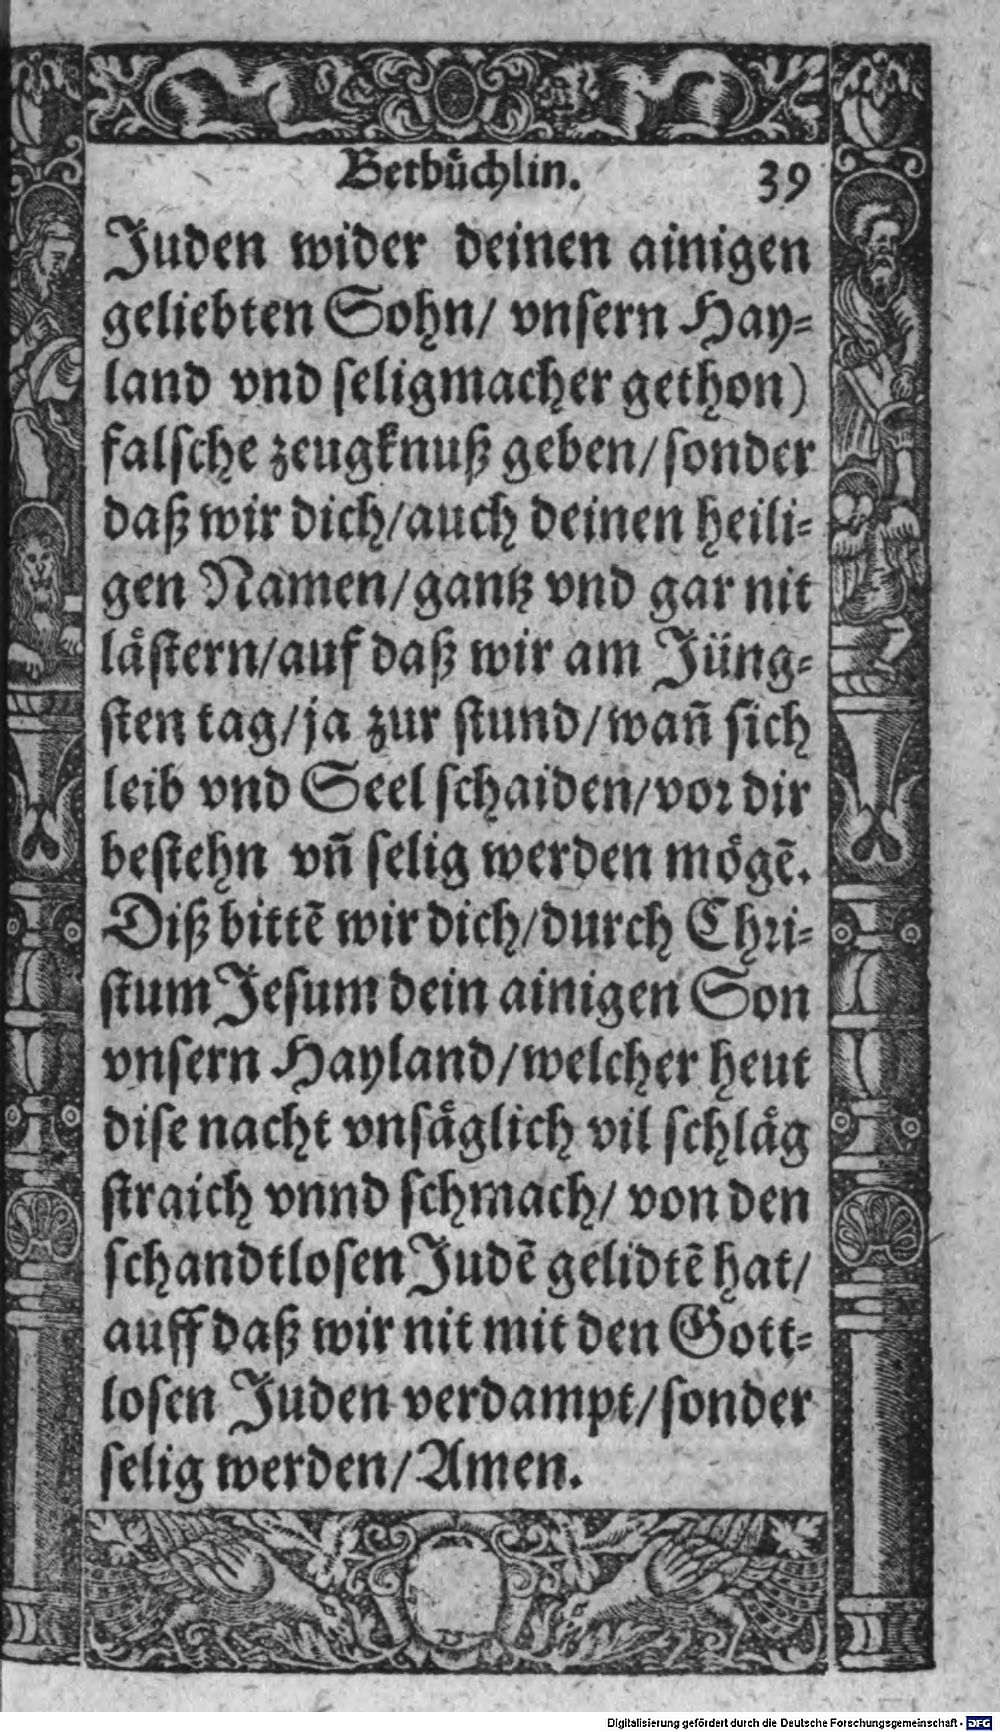 Betbuͤchlin. 39
Juden wider deinen ainigen
geliebten Sohn/ vnſern Hay⸗
land vnd ſeligmacher gethon)
falſche zeugknuß geben/ſonder
daß wir dich/auch deinen heili⸗
gen Namen/gantz vnd gar nit
laͤſtern/auf daß wir am Jüng⸗
ſten tag/ja zur ſtund/wañ ſich
leib vnd Seel ſchaiden/voꝛ dir
beſtehn vñ ſelig werden moͤgẽ.
Diß bittẽ wir dich/durch Chꝛi⸗
ſtum Jeſum dein ainigen Son
vnſern Hayland/welcher heut
diſe nacht vnſaͤglich vil ſchlaͤg
ſtraich vnnd ſchmach/ von den
ſchandtloſen Judẽ gelidtẽ hat/
auff daß wir nit mit den Gott⸗
loſen Juden verdampt/ſonder
ſelig werden/Amen.
Digitalisierung gefördert durch die Deutsche Forschungsgemeinschaft - DFG